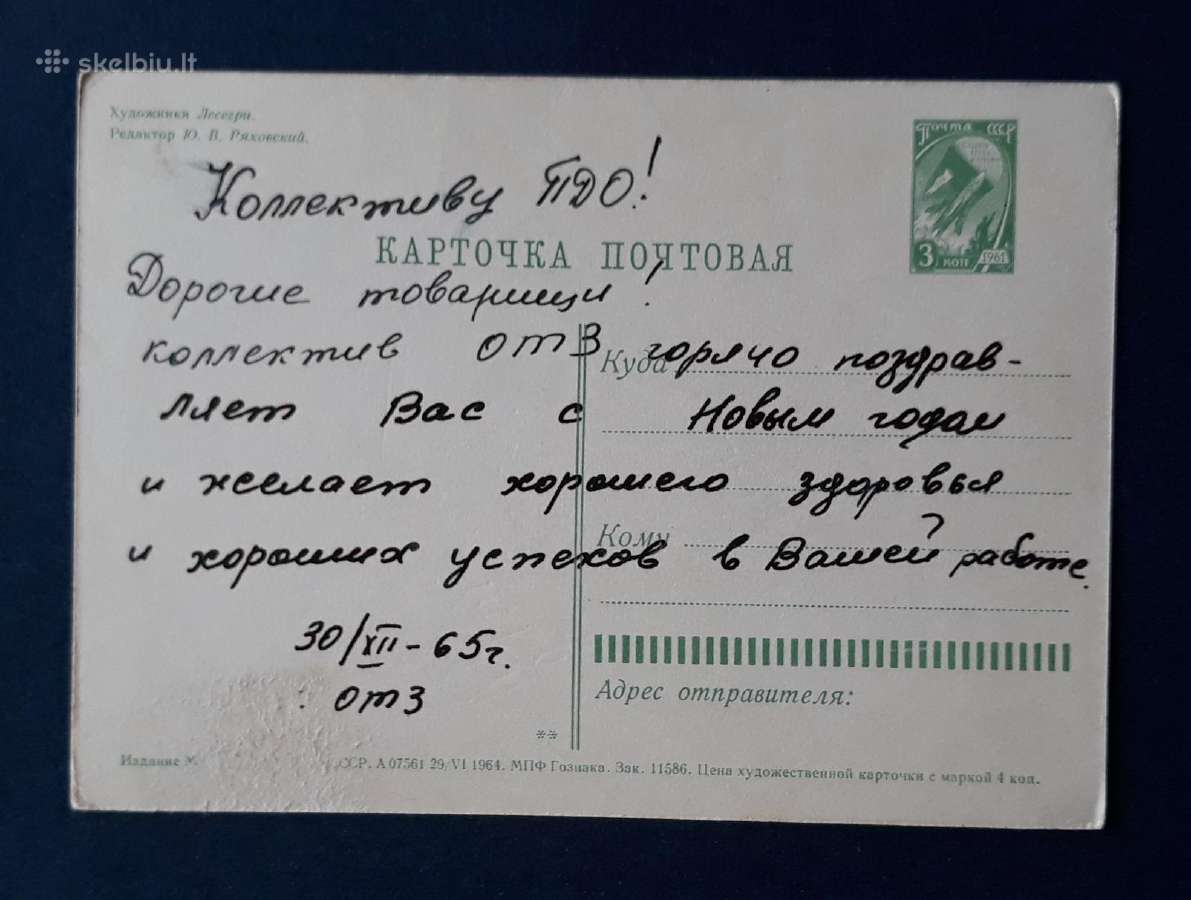 skelbiu.lt
Художники Лесегри.
Редактор Ю. В. Ряховский.
Почта СССР
3 коп 1961
Коллективу ПДО!
КАРТОЧКА ПОЧТОВАЯ
Дорогие товарищи!
коллектив ОТЗ горячо поздрав-
ляет Вас с Новым годом
и желает хорошего здоровья
и хороших успехов в Вашей работе.
30/XII - 65г.
ОТЗ
Куда
Кому
Адрес отправителя:
Издание М
ССР. А 07561 29/VI 1964. МПФ Гознака. Зак. 11586. Цена художественной карточки с маркой 4 коп.